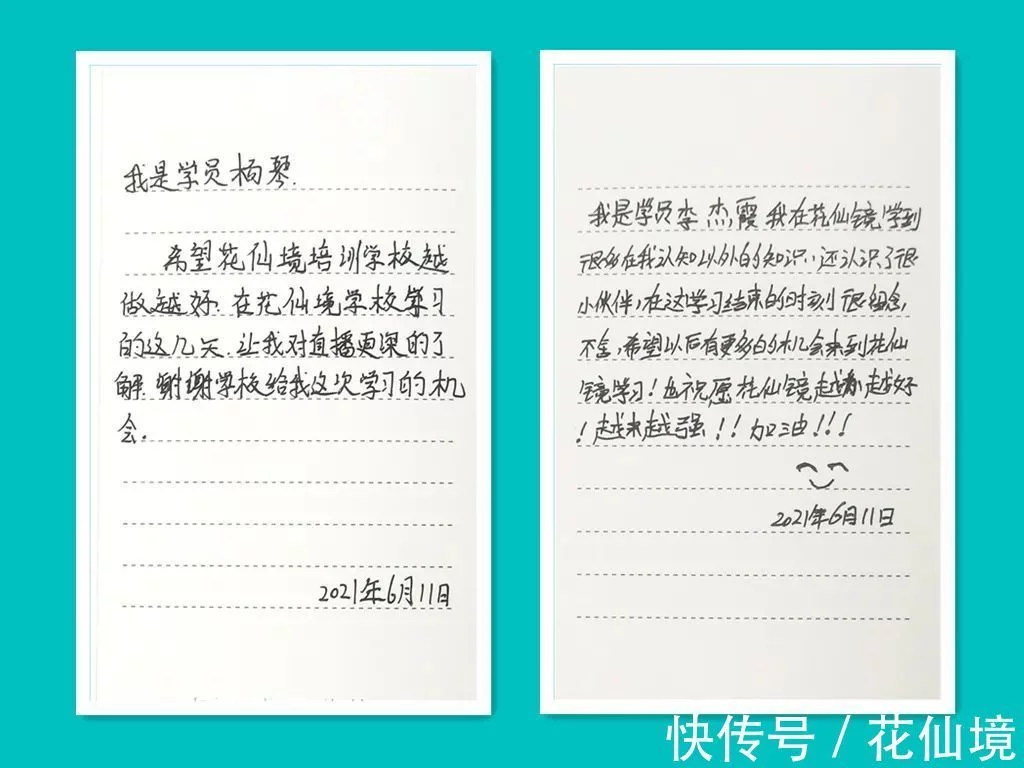 我是学员杨琴.
希望花仙境培训学校越
做越好.在花仙境学校学习
的这几天.让我对直播更深的了
解.谢谢学校给我这次学习的机
会.
2021年6月11日
我是学员李杰霞我在花仙镜学到
很多在我认知以外的知识,还认识了很
小伙伴,在这学习结束的时刻很想念,
不舍,希望以后有更多的机会来到花仙
镜学习!也祝愿花仙镜越办越好
!越来越强!!加油!!!
2021年6月11日
快传号/花仙境